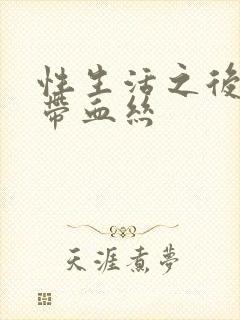 性生活之後
帶血絲
天涯煮夢